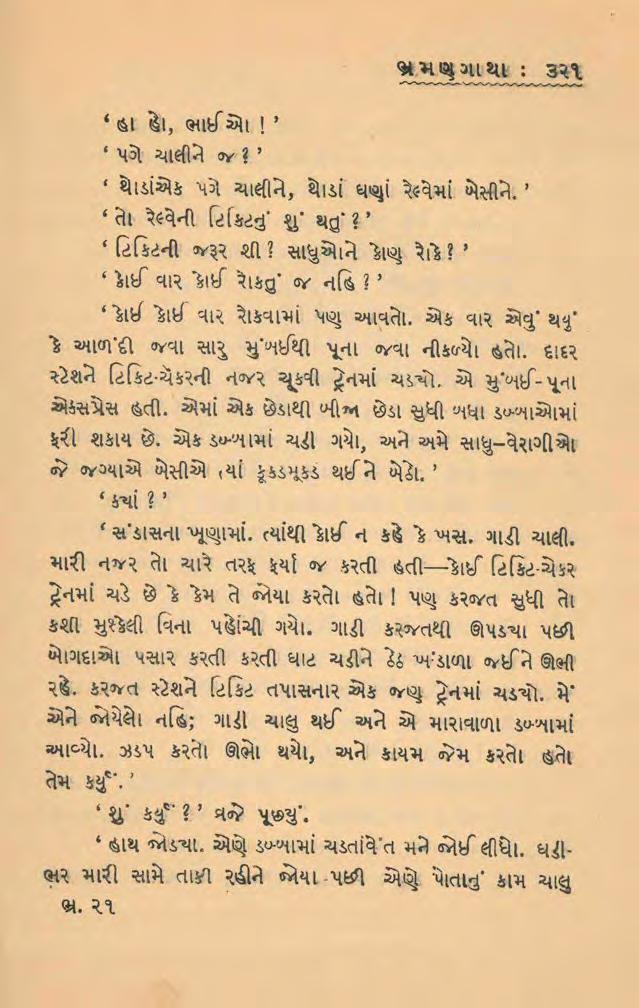 ભ્રમણગાથા : ૩૨૧
‘ હા હો, ભાઈઓ ! ’
‘ પગે ચાલીને જ ? ’
‘ થોડાંએક પગે ચાલીને, થોડાં ઘણાં રેલ્વેમાં બેસીને. ’
‘ તો રેલ્વેની ટિકિટનું શું થતું ? ’
‘ ટિકિટની જરૂર શી ? સાધુઓને કોણ રોકે ? ’
‘ કોઈ વાર કોઈ રોકતું જ નહિ ? ’
‘ કોઈ કોઈ વાર રોકવામાં પણ આવતો. એક વાર એવું થયું
કે આળંદી જવા સારુ મુંબઈથી પૂના જવા નીકળ્યો હતો. દાદર
સ્ટેશને ટિકિટ-ચૅકરની નજર ચૂકવી ટ્રેનમાં ચડ્યો. એ મુંબઈ-પૂના
એક્સપ્રેસ હતી. એમાં એક છેડાથી બીજા છેડા સુધી બધા ડબ્બાઓમાં
ફરી શકાય છે. એક ડબ્બામાં ચડી ગયો, અને અમે સાધુ-વેરાગીઓ
જે જગ્યાએ બેસીએ ત્યાં કૂકડમૂકડ થઈને બેઠો. ’
‘ ક્યાં ? ’
‘ સંડાસના ખૂણામાં. ત્યાંથી કોઈ ન કહે કે ખસ. ગાડી ચાલી.
મારી નજર તો ચારે તરફ ફર્યા જ કરતી હતી—કોઈ ટિકિટ-ચેકર
ટ્રેનમાં ચડે છે કે કેમ તે જોયા કરતો હતો ! પણ કરજત સુધી તો
કશી મુશ્કેલી વિના પહોંચી ગયો. ગાડી કરજતથી ઊપડ્યા પછી
બોગદાઓ પસાર કરતી કરતી ઘાટ ચડીને ઠેઠ ખંડાળા જઈને ઊભી
રહે. કરજત સ્ટેશને ટિકિટ તપાસનાર એક જણ ટ્રેનમાં ચડ્યો. મેં
એને જોયેલો નહિ; ગાડી ચાલુ થઈ અને એ મારાવાળા ડબ્બામાં
આવ્યો. ઝડપ કરતો ઊભો થયો, અને કાયમ જેમ કરતો હતો
તેમ કર્યું. ’
‘ શું કર્યું ? ’ વ્રજે પૂછ્યું.
‘ હાથ જોડ્યા. એણે ડબ્બામાં ચડતાંવેંત મને જોઈ લીધો. ઘડી-
ભર મારી સામે તાકી રહીને જોયા પછી એણે પોતાનું કામ ચાલુ
ભ્ર. ૨૧